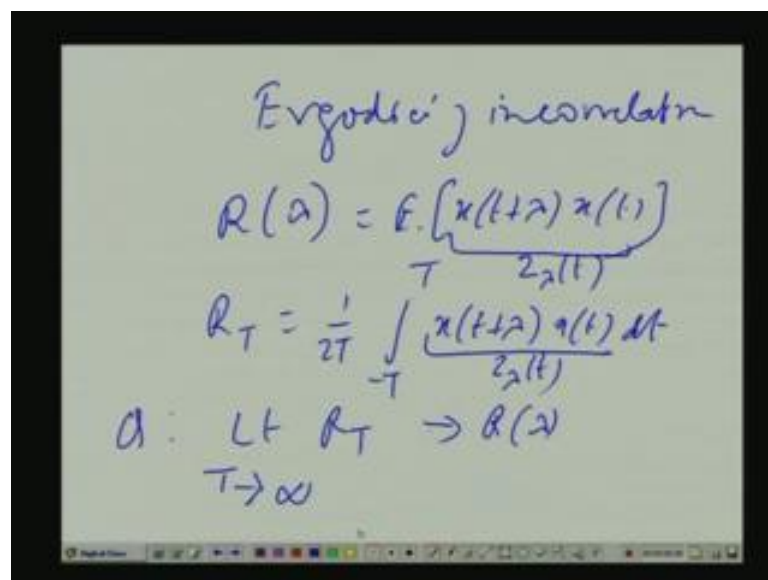 Ergodici) incorrelatn
R(λ) = E.[x(t+λ) x(t)]
z_λ(t)
R_T = 1/2T ∫_{-T}^{T} x(t+λ) x(t) dt
z_λ(t)
Q : Lt R_T → R(λ)
T→∞